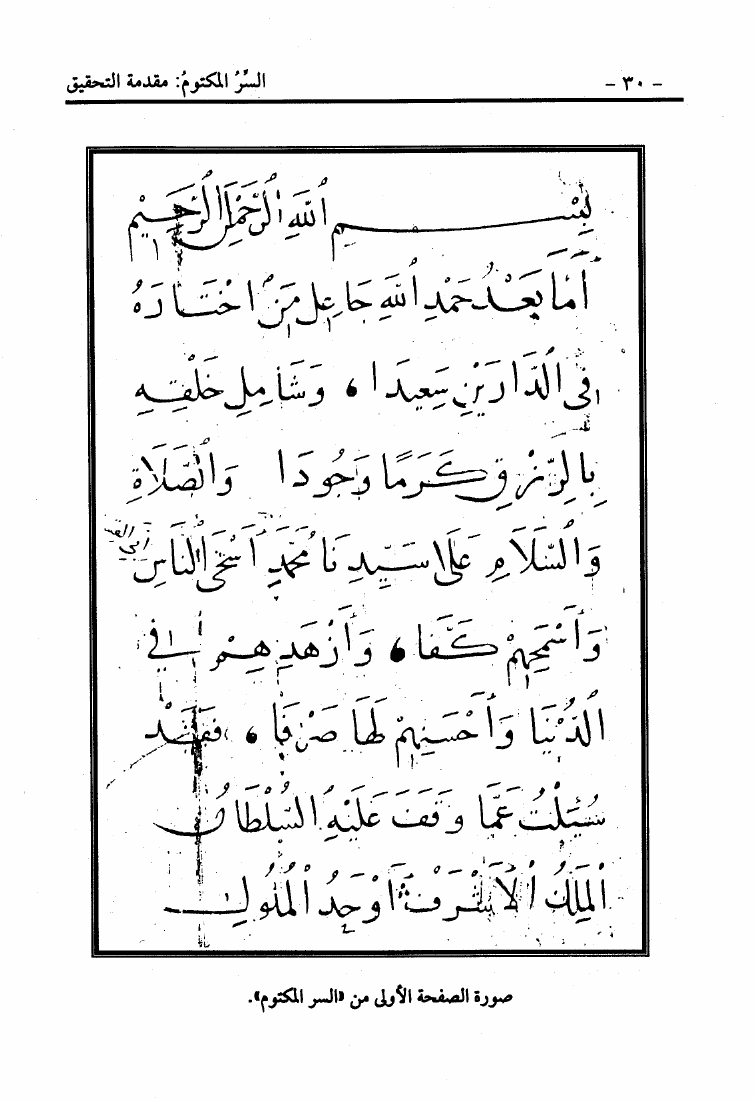 - ٣٠ - السِّرُ المكتومُ: مقدمة التحقيق
بِسْمِ اللَّهِ الرَّحْمٰنِ الرَّحِيمِ
أَمَّا بَعْدُ حَمْدِ اللَّهِ جَاعِلِ مَنِ اخْتَارَهُ
فِي الدَّارَيْنِ سَعِيدَا، وَشَامِلِ خَلْقِهِ
بِالرِّزْقِ كَرَمًا وَجُودَا وَالصَّلَاةِ
وَالسَّلَامِ عَلَى سَيِّدِنَا مُحَمَّدٍ أَسْخَى النَّاسِ
وَأَسْمَحِهِمْ كَفَّا، وَأَزْهَدِهِمْ فِي
الدُّنْيَا وَأَحْسَنِهِمْ لَهَا صَرْفَا، فَقَدْ
سُئِلْتُ عَمَّا وَقَفَ عَلَيْهِ السُّلْطَانُ
الْمَلِكُ الْأَشْرَفُ أَوْحَدُ الْمُلُوكِ
صورة الصفحة الأولى من «السر المكتوم».